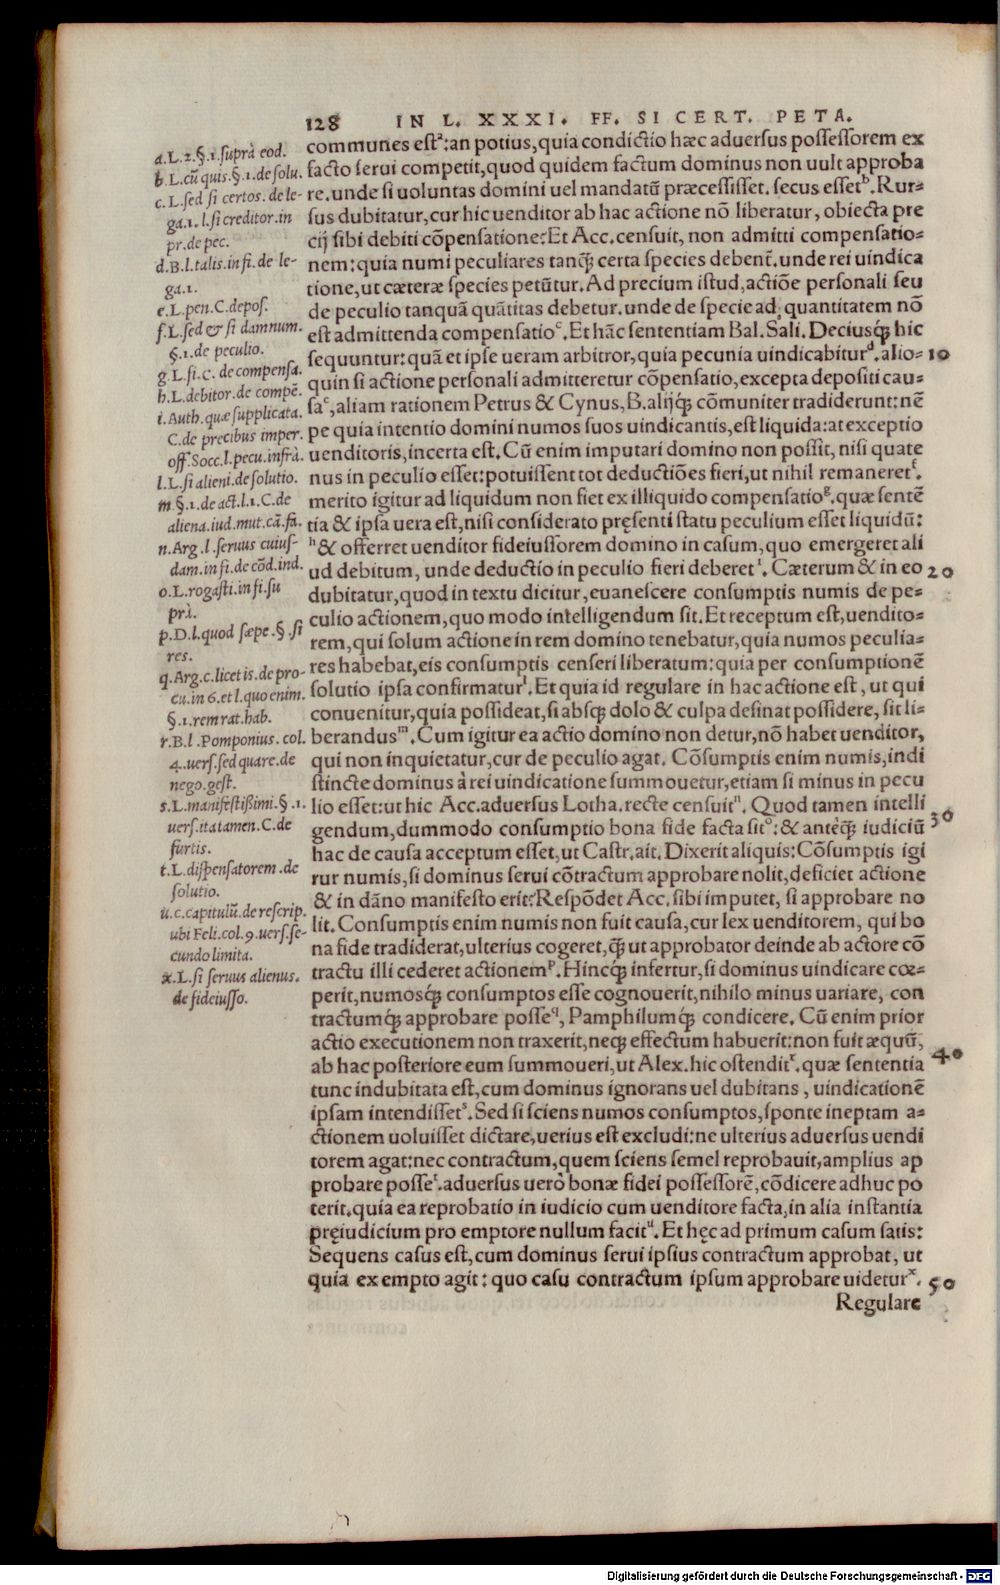 128 IN L. XXXI. FF. SI CERT. PETA.
communes est᷎ᵃ:an potius,quia condictio hæc aduersus possessorem ex
facto serui competit,quod quidem factum dominus non uult approba
re.unde si uoluntas domini uel mandatū præcessisset. secus essetᵇ. Rur=
sus dubitatur,cur hic uenditor ab hac actione nō liberatur, obiecta pre
cij sibi debiti cōpensatione:Et Acc.censuit, non admitti compensatio=
nem:quia numi peculiares tanq̃ꝫ certa species debent̃.unde rei uindica
tione,ut cæteræ species petūtur. Ad precium istud,actiōe personali seu
de peculio tanquā quātitas debetur.unde de specie ad quantitatem nō
est admittenda compensatioᶜ.Et hāc sententiam Bal.Sali.Deciusq̃ꝫ hic
sequuntur:quā et ipse ueram arbitror,quia pecunia uindicabiturᵈ.alio= 10
quin si actione personali admitteretur cōpensatio,excepta depositi cau=
saᵉ,aliam rationem Petrus & Cynus,B.alijq̃ꝫ cōmuniter tradiderunt:nē
pe quia intentio domini numos suos uindicantis,est liquida:at exceptio
uenditoris,incerta est. Cū enim imputari domino non possit, nisi quate
nus in peculio esset:potuissent tot deductiōes fieri,ut nihil remaneretᶠ.
merito igitur ad liquidum non fiet ex illiquido compensatioᵍ.quæ sentē
tia & ipsa uera est,nisi considerato pręsenti statu peculium esset liquidū:
ʰ& offerret uenditor fideiussorem domino in casum,quo emergeret ali
ud debitum, unde deductio in peculio fieri deberetⁱ. Cæterum & in eo 20
dubitatur,quod in textu dicitur, euanescere consumptis numis de pe=
culio actionem,quo modo intelligendum sit. Et receptum est,uendito=
rem,qui solum actione in rem domino tenebatur,quia numos peculia=
res habebat,eis consumptis censeri liberatum:quia per consumptionē
solutio ipsa confirmaturˡ. Et quia id regulare in hac actione est, ut qui
conuenitur,quia possideat,si absq̃ꝫ dolo & culpa desinat possidere, sit li=
berandusᵐ. Cum igitur ea actio domino non detur,nō habet uenditor,
qui non inquietatur, cur de peculio agat. Cōsumptis enim numis,indi
stincte dominus à rei uindicatione summouetur,etiam si minus in pecu
lio esset:ut hic Acc.aduersus Lotha.recte censuitⁿ. Quod tamen intelli
gendum,dummodo consumptio bona fide facta sitᵒ:& anteq̃ꝫ iudiciū 30
hac de causa acceptum esset,ut Castr.ait. Dixerit aliquis:Cōsumptis igi
rur numis,si dominus serui cōtractum approbare nolit,deficiet actione
& in dāno manifesto erit:Respōdet Acc.sibi imputet, si approbare no
lit. Consumptis enim numis non fuit causa,cur lex uenditorem, qui bo
na fide tradiderat,ulterius cogeret,q̃ꝫ ut approbator deinde ab actore cō
tractu illi cederet actionemᵖ.Hincq̃ꝫ infertur,si dominus uindicare cœ=
perit,numosq̃ꝫ consumptos esse cognouerit,nihilo minus uariare, con
tractumq̃ꝫ approbare posse�q, Pamphilumq̃ꝫ condicere. Cū enim prior
actio executionem non traxerit,neq̃ꝫ effectum habuerit:non fuit æquū,
ab hac posteriore eum summoueri,ut Alex.hic ostenditʳ.quæ sententia 40
tunc indubitata est,cum dominus ignorans uel dubitans, uindicationē
ipsam intendissetˢ. Sed si sciens numos consumptos,sponte ineptam a=
ctionem uoluisset dictare,uerius est excludi:ne ulterius aduersus uendi
torem agat:nec contractum,quem sciens semel reprobauit,amplius ap
probare posseᵗ.aduersus uerò bonæ fidei possessorē,cōdicere adhuc po
terit.quia ea reprobatio in iudicio cum uenditore facta,in alia instantia
pręiudicium pro emptore nullum facitᵘ. Et hęc ad primum casum satis:
Sequens casus est,cum dominus serui ipsius contractum approbat, ut
quia ex empto agit: quo casu contractum ipsum approbare uideturˣ. 50
Regulare
a.L.2.§.1.suprà eod.
b.L.cū quis.§.1.de solu.
c.L.sed si certos.de le-
ga.1.l.si creditor.in
pr.de pec.
d.B.l.talis.in fi.de le-
ga.1.
e.L.pen.C.depos.
f.L.sed & si damnum.
§.1.de peculio.
g.L.fi.C.de compensa.
h.L.debitor.de compē.
i.Auth.quæ supplicata.
C.de precibus imper.
off.Socc.l.pecu.infrà.
l.L.si alieni.de solutio.
m.§.1.de act.l.1.C.de
aliena.iud.mut.cā.fa.
n.Arg.l.seruus cuius-
dam.in fi.de cōd.ind.
o.L.rogasti.in fi.su
prà.
p.D.l.quod sæpe.§.si
res.
q.Arg.c.licet is.de pro-
cu.in 6.et l.quo enim.
§.1.rem rat.hab.
r.B.l.Pomponius.col.
4.uers.sed quare.de
nego.gest.
s.L.manifestißimi.§.1.
uers.ita tamen.C.de
furtis.
t.L.dispensatorem.de
solutio.
u.c.capitulū.de rescrip.
ubi Feli.col.9.uers.se-
cundo limita.
x.L.si seruus alienus.
de fideiusso.
Digitalisierung gefördert durch die Deutsche Forschungsgemeinschaft - DFG